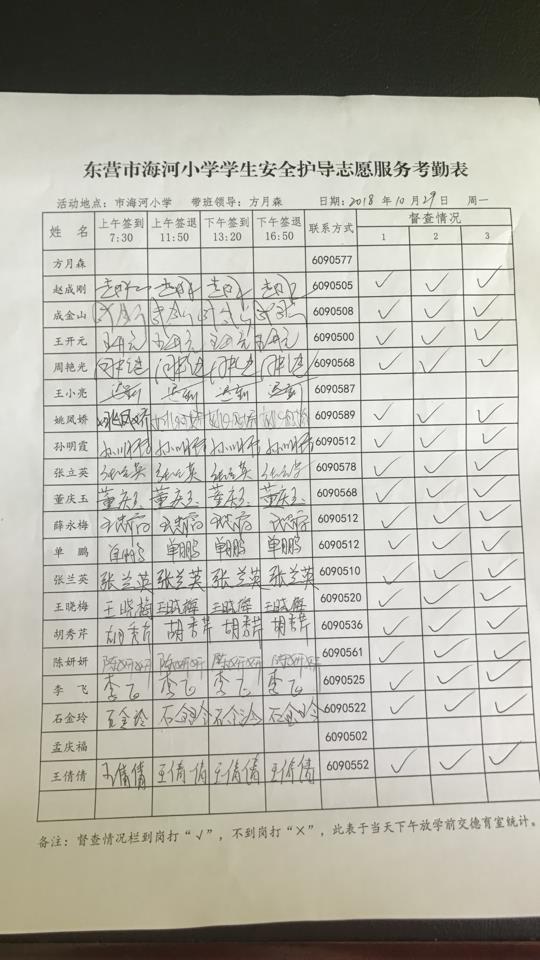 东营市海河小学学生安全护导志愿服务考勤表
活动地点：市海河小学 带班领导：方月森 日期：2018 年 10 月 29 日 周一
姓 名 上午签到 7:30 上午签退 11:50 下午签到 13:20 下午签退 16:50 联系方式 督查情况
1 2 3
方月森 6090577
赵成刚 6090505 ✓ ✓ ✓
成金山 6090508 ✓ ✓ ✓
王开元 王开元 王开元 王开元 王开元 6090500 ✓ ✓ ✓
周艳光 6090568 ✓ ✓ ✓
王小亮 6090587
姚凤娇 6090589 ✓ ✓ ✓
孙明霞 6090512 ✓ ✓ ✓
张立英 张立英 张立英 张立英 张立英 6090578 ✓ ✓ ✓
董庆玉 董庆玉 董庆玉 董庆玉 董庆玉 6090568 ✓ ✓ ✓
薛永梅 6090512 ✓ ✓ ✓
单 鹏 单鹏 单鹏 单鹏 单鹏 6090512 ✓ ✓ ✓
张兰英 张兰英 张兰英 张兰英 张兰英 6090510 ✓ ✓ ✓
王晓梅 王晓梅 王晓梅 王晓梅 王晓梅 6090520 ✓ ✓ ✓
胡秀芹 胡秀芹 胡秀芹 胡秀芹 胡秀芹 6090536 ✓ ✓ ✓
陈妍妍 陈妍妍 陈妍妍 陈妍妍 陈妍妍 6090561 ✓ ✓ ✓
李 飞 李飞 李飞 李飞 李飞 6090525 ✓ ✓ ✓
石金玲 石金玲 石金玲 石金玲 石金玲 6090522 ✓ ✓ ✓
孟庆福 6090502
王倩倩 王倩倩 王倩倩 王倩倩 王倩倩 6090552 ✓ ✓ ✓
备注：督查情况栏到岗打“√”，不到岗打“×”，此表于当天下午放学前交德育室统计。